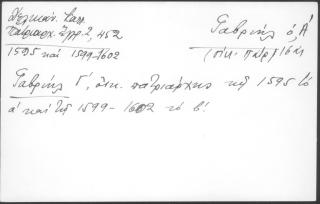 Δελικάν. Κατ.
Πατριαρχ. Έγγρ. 2, 452
1595 και 1599-1602
Γαβριήλ ὁ, Α΄
(οἰκ. πατρ)
Γαβριήλ Γ΄, οἰκ. πατριάρχης τῆς 1595 τό
α΄ καί τῆς 1599-1602 τό β΄.